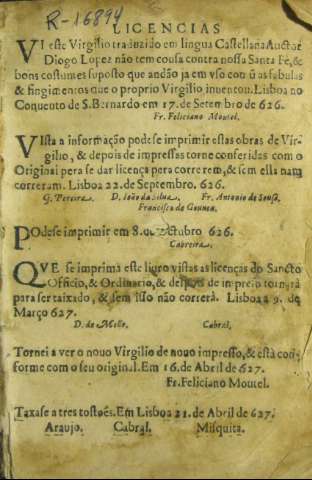 R-16894
LICENCIAS
VI este Virgilio traduzido em lingua Castellana Auctor
Diogo Lopez não tem cousa contra nossa Santa Fè, &
bons costumes suposto que andão ja em vso cõ ũ as fabulas
& fingimentos que o proprio Virgilio inuentou. Lisboa no
Conuento de S. Bernardo em 17. de Setembro de 626.
Fr. Feliciano Moutel.
VIsta a informação podese imprimir estas obras de Vir-
gilio, & depois de impressas torne conferidas com o
Original pera se dar licença pera correrem, & sem ella nam
correram. Lisboa 22. de Septembro. 626.
G. Pereira. D. Ioão da Silua. Fr. Antonio de Sousa.
Francisco de Gouuea.
POdese imprimir em 8. de Octubro 626.
Cabreira.
QVE se imprima este liuro vistas as licenças do Sancto
Officio, & Ordinario, & despois de impresso tornará
para ser taixado, & sem isso não correrà. Lisboa 9. de
Março 627.
D. de Mello. Cabral.
Tornei a ver o nouo Virgilio de nouo impresso, & està con-
forme com o seu original. Em 16. de Abril de 627.
Fr. Feliciano Moutel.
Taxase a tres tostoẽs. Em Lisboa 21. de Abril de 627.
Araujo. Cabral. Misquita.